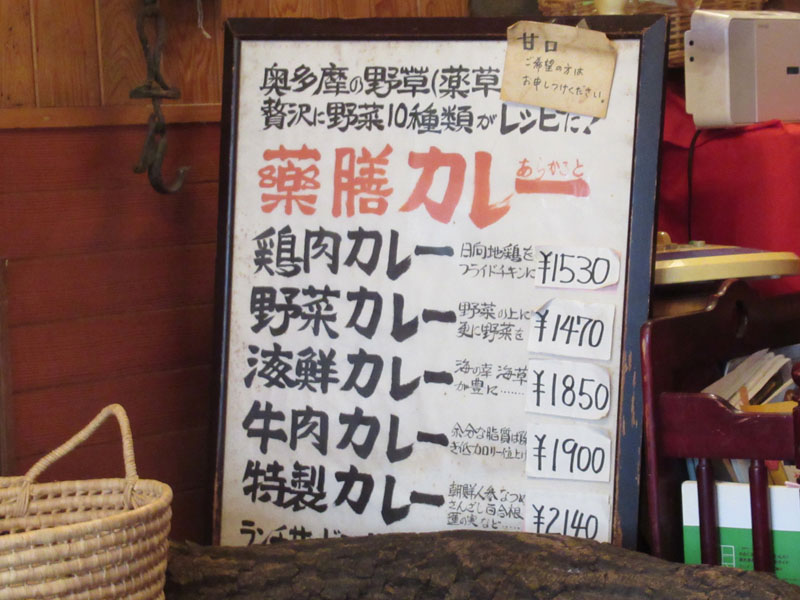 甘口
ご希望の方は
お申しつけください。
奥多摩の野草(薬草
贅沢に野菜10種類がレシピだ!
薬膳カレー あらかさと
鶏肉カレー 日向地鶏を
フライドチキンに ¥1530
野菜カレー 野菜の上に
更に野菜を ¥1470
海鮮カレー 海の幸 海草
が豊に…… ¥1850
牛肉カレー 余分な脂質は除
き低カロリー仕上げ ¥1900
特製カレー 朝鮮人参 なつめ
さんざし 百合根
蓮の実など…… ¥2140
ランチサー